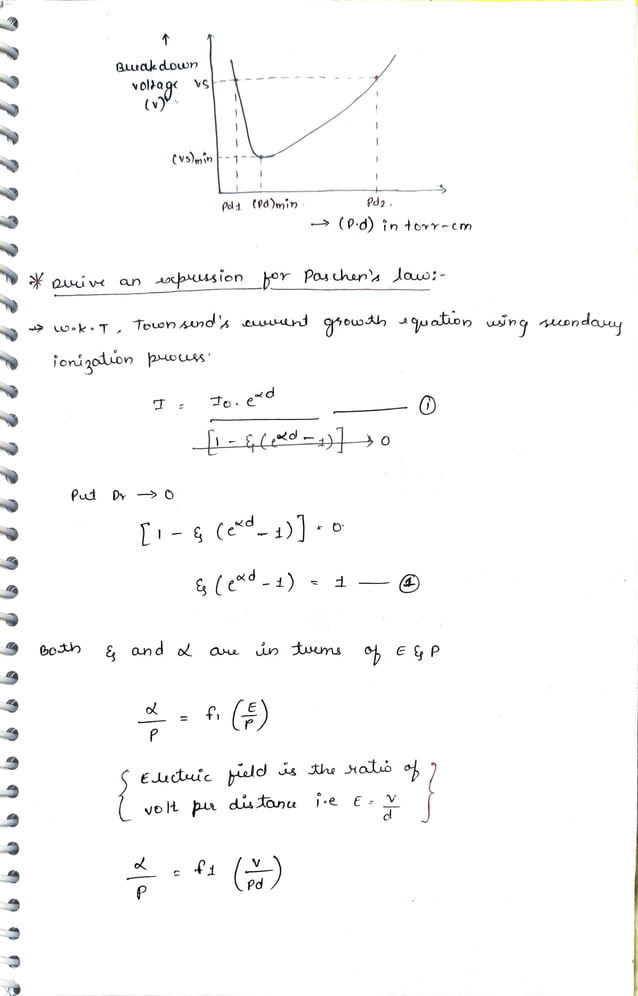 Breakdown
voltage
(V)
Vs
(Vs)min
Pd1 (Pd)min Pd2.
→ (P.d) in torr-cm
* Derive an expression for Paschen's law:-
→ W.K.T, Townsend's current growth equation using secondary
ionization process.
I = I0. e^αd / [1 - ξ(e^αd - 1)] → 0 — ①
Put Dr → 0
[1 - ξ (e^αd - 1)] = 0.
ξ (e^αd - 1) = 1 — ②
Both ξ and α are in terms of E & P
α/P = f1 (E/P)
{ Electric field is the ratio of
volt per distance i.e E = V/d }
α/P = f1 (V/Pd)